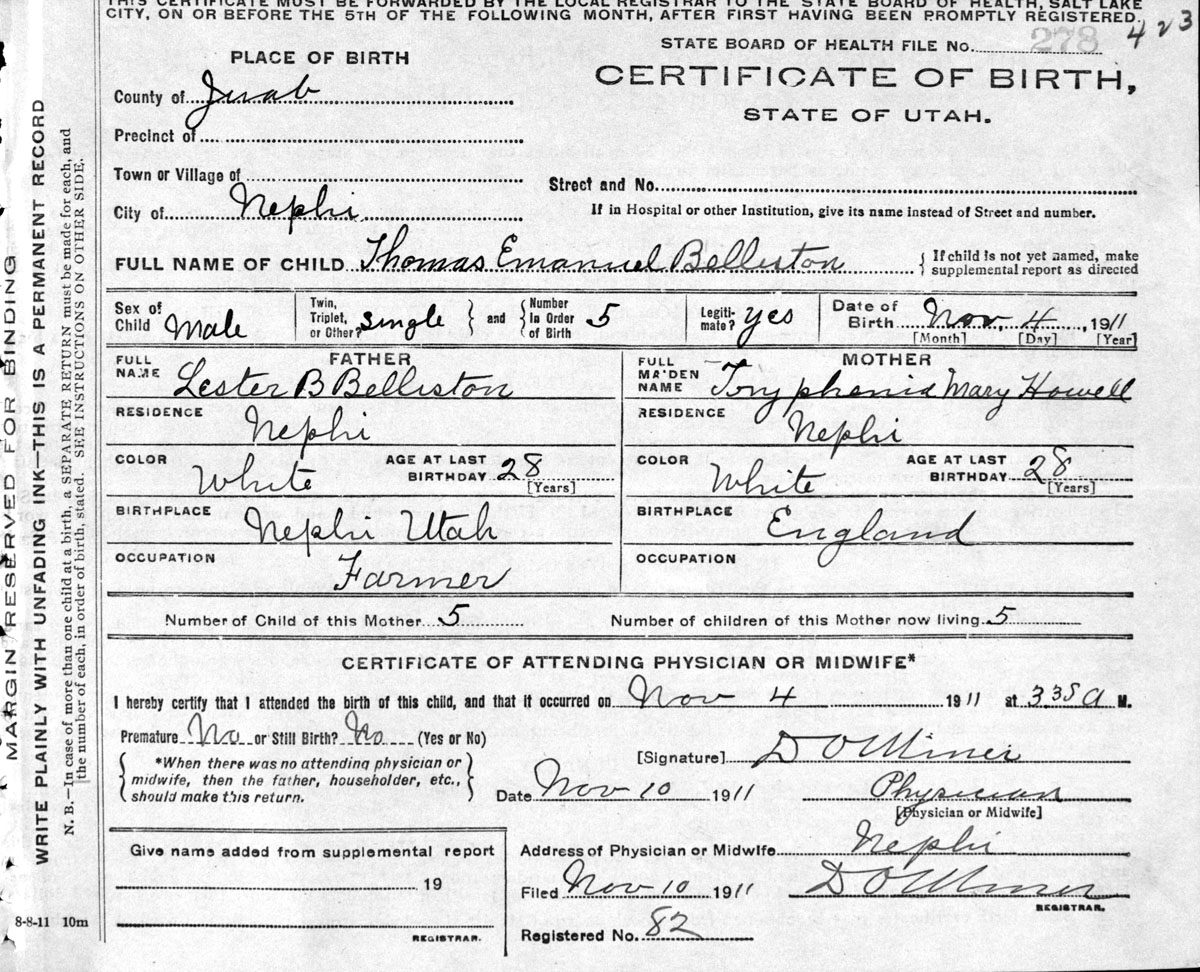 THIS CERTIFICATE MUST BE FORWARDED BY THE LOCAL REGISTRAR TO THE STATE BOARD OF HEALTH, SALT LAKE
CITY, ON OR BEFORE THE 5TH OF THE FOLLOWING MONTH, AFTER FIRST HAVING BEEN PROMPTLY REGISTERED.
423
STATE BOARD OF HEALTH FILE No. 278
PLACE OF BIRTH
CERTIFICATE OF BIRTH,
STATE OF UTAH.
County of Juab
Precinct of
Town or Village of
Street and No.
City of Nephi
If in Hospital or other Institution, give its name instead of Street and number.
FULL NAME OF CHILD Thomas Emanuel Belliston
{ If child is not yet named, make
supplemental report as directed
Sex of Child Male
Twin, Triplet, or Other? single } and { Number in Order of Birth 5
Legitimate? yes
Date of Birth Nov, 4, 1911
[Month] [Day] [Year]
FATHER
FULL NAME Lester B Belliston
MOTHER
FULL MAIDEN NAME Tryphenia Mary Howell
RESIDENCE Nephi
RESIDENCE Nephi
COLOR White AGE AT LAST BIRTHDAY 28 [Years]
COLOR White AGE AT LAST BIRTHDAY 28 [Years]
BIRTHPLACE Nephi Utah
BIRTHPLACE England
OCCUPATION Farmer
OCCUPATION
Number of Child of this Mother 5 Number of children of this Mother now living 5
CERTIFICATE OF ATTENDING PHYSICIAN OR MIDWIFE*
I hereby certify that I attended the birth of this child, and that it occurred on Nov 4 1911 at 335 a M.
Premature No or Still Birth? No (Yes or No)
{ *When there was no attending physician or
midwife, then the father, householder, etc.,
should make this return. }
[Signature] D O Miner
Date Nov 10 1911 Physician
[Physician or Midwife]
Address of Physician or Midwife Nephi
Filed Nov 10 1911 D O Miner
REGISTRAR.
Registered No. 82
Give name added from supplemental report
19
REGISTRAR.
8-8-11 10m
MARGIN RESERVED FOR BINDING
WRITE PLAINLY WITH UNFADING INK—THIS IS A PERMANENT RECORD
N. B.—In case of more than one child at a birth, a SEPARATE RETURN must be made for each, and
the number of each, in order of birth, stated. SEE INSTRUCTIONS ON OTHER SIDE.